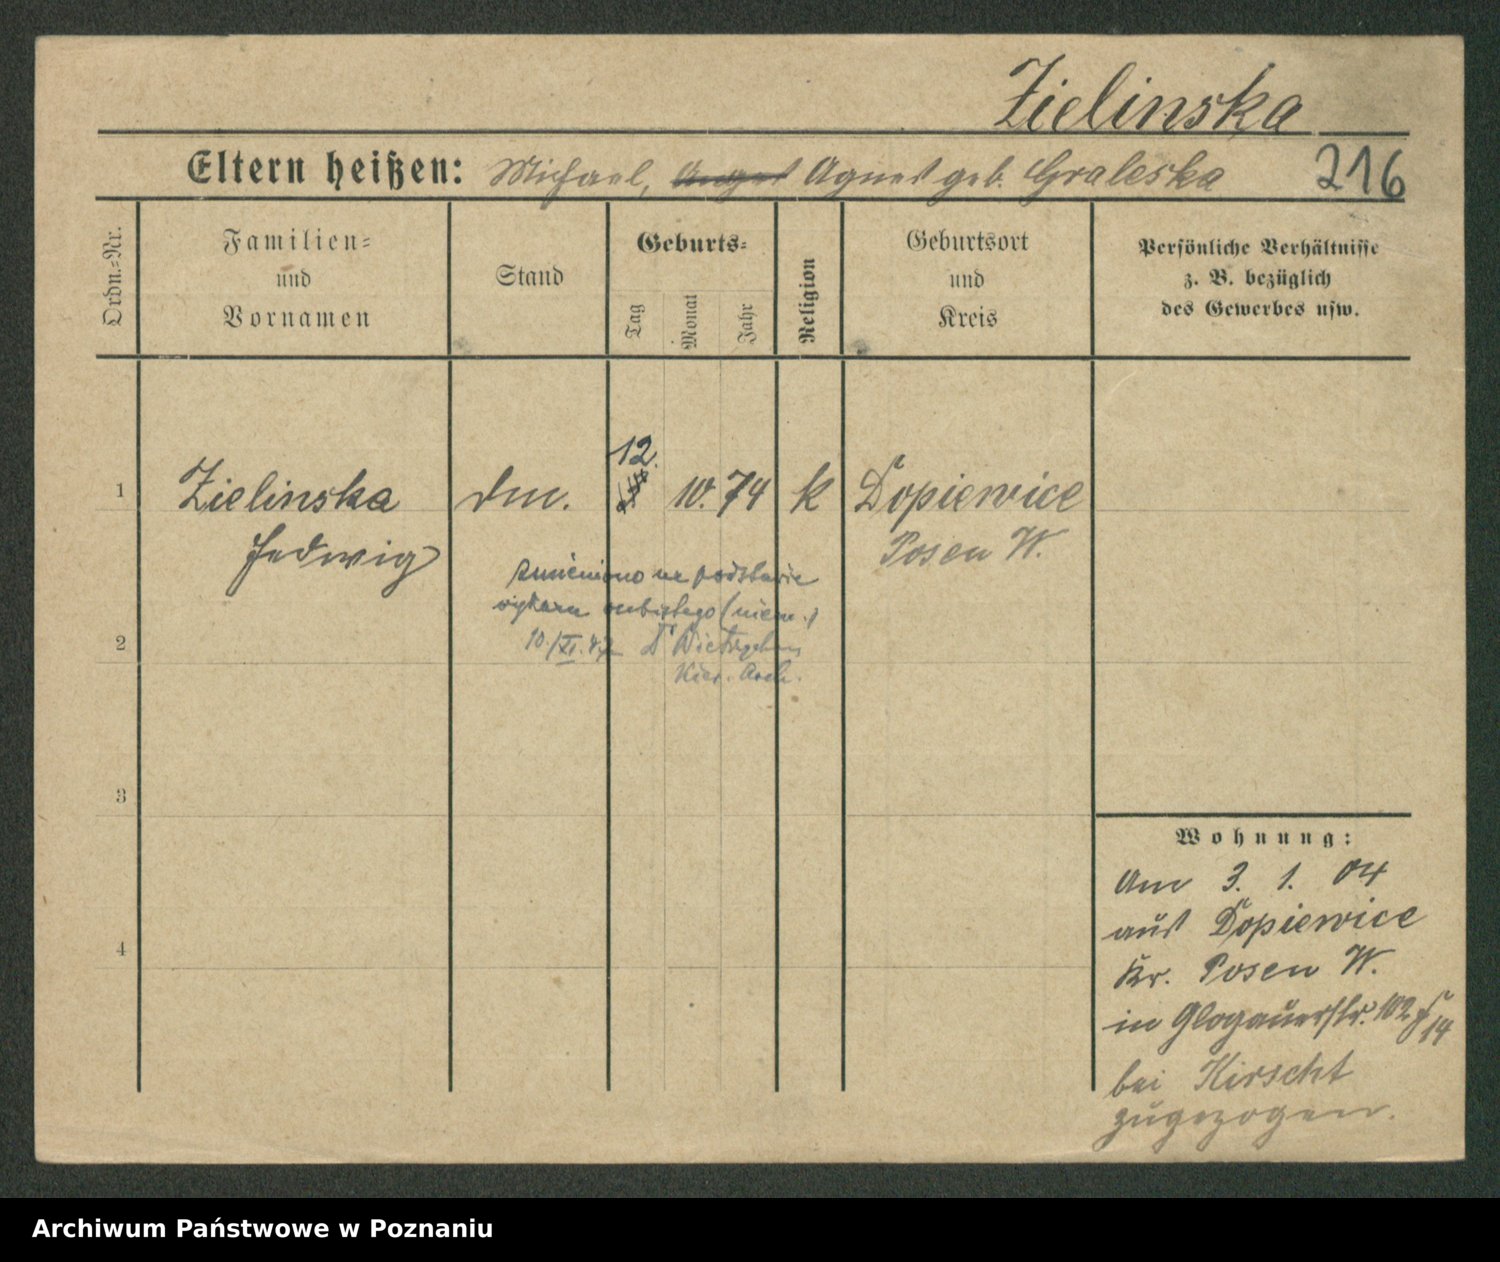 Zielinska
Eltern heißen: Michael, Agnes geb. Graleska 216
Ordn.-Nr.
Familien- und Vornamen
Stand
Geburts-
Tag
Monat
Jahr
Religion
Geburtsort und Kreis
Persönliche Verhältnisse
z. B. bezüglich
des Gewerbes usw.
12.
1 Zielinska dm. 10. 74 k Dopiewice
Jedwig Posen W.
zmieniono na podstawie
wykazu osobistego (niem.)
10./XI.47 Dr
Kier. Arch.
2
3
4
Wohnung:
Am 3. 1. 04
aus Dopiewice
Kr. Posen W.
in Glogauerstr. 102 14
bei Kirscht
zugezogen.
Archiwum Państwowe w Poznaniu